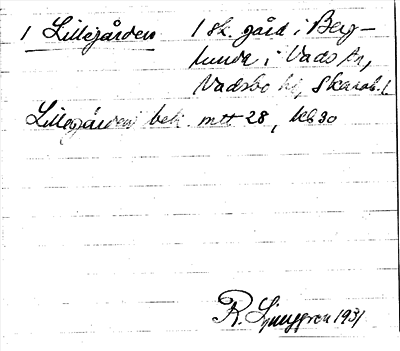 1 Lillegården 1 sk. gård i Berg-
lunda i Vads sn,
Vadsbo hd, Skarab. l
Lillegården bek. mtt 28, kb 30
R. Ljunggren 1931